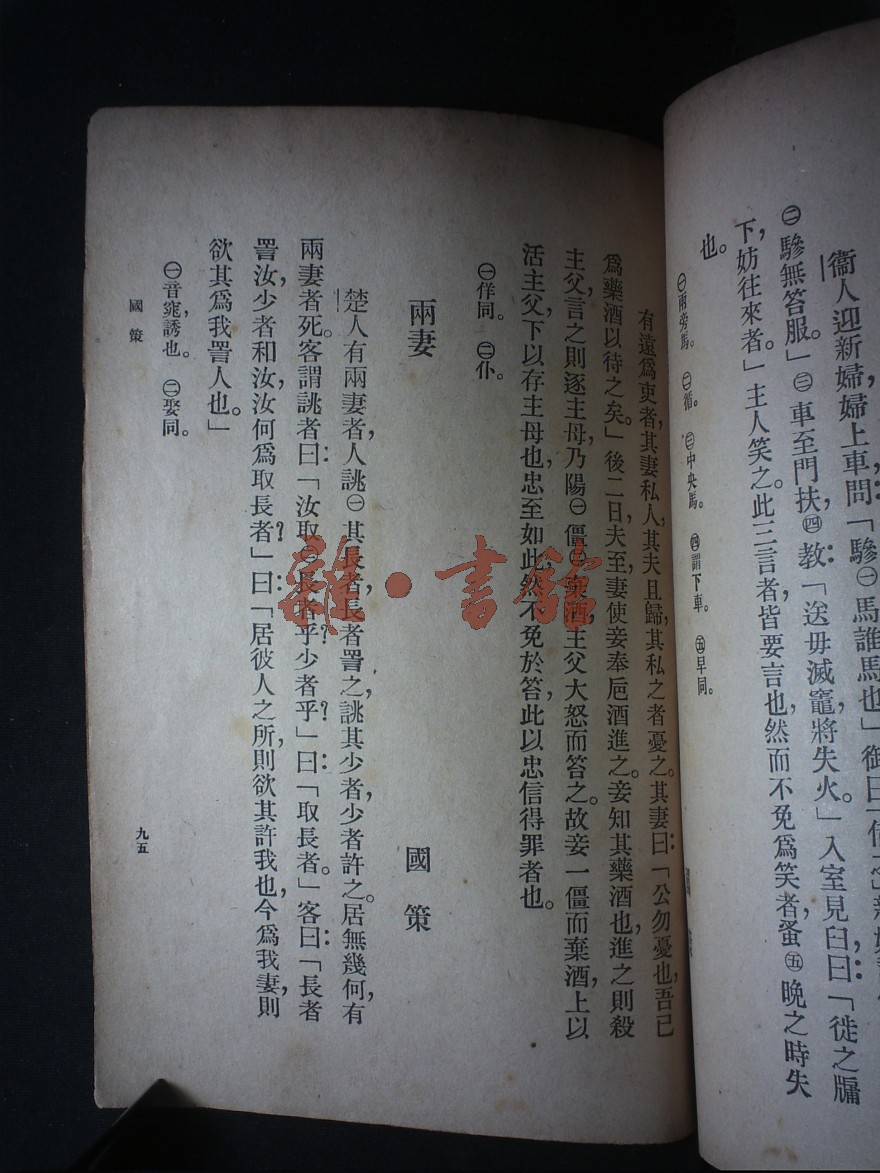 衞人迎新婦婦上車問：「驂㊀馬誰馬也」御曰「借之」
㊁驂無笞服。」㊂車至門扶㊃教：「送毋滅竈，將失火。」入室見臼曰：「徙之牖
下，妨往來者。」主人笑之。此三言者，皆要言也，然而不免爲笑者蚤㊄晚之時失
也。
㊀兩旁馬。 ㊁循。 ㊂中央馬。 ㊃謂下車。 ㊄早同。
有遠爲吏者，其妻私人，其夫且歸，其私之者憂之。其妻曰：「公勿憂也，吾已
爲藥酒以待之矣。」後二日，夫至，妻使妾奉巵酒進之。妾知其藥酒也，進之則殺
主父，言之則逐主母，乃陽㊀僵㊁棄酒。主父大怒而笞之。故妾一僵而棄酒，上以
活主父，下以存主母也，忠至如此，然不免於笞，此以忠信得罪者也。
㊀佯同。 ㊁仆。
兩妻 國策
楚人有兩妻者，人誂㊀其長者，長者詈之，誂其少者，少者許之。居無幾何，有
兩妻者死。客謂誂者曰：「汝取㊁長者乎？少者乎？」曰：「取長者。」客曰：「長者
詈汝，少者和汝，汝何爲取長者？」曰：「居彼人之所，則欲其許我也，今爲我妻，則
欲其爲我詈人也。」
㊀音窕，誘也。 ㊁娶同。
國策
九五
雜·書館